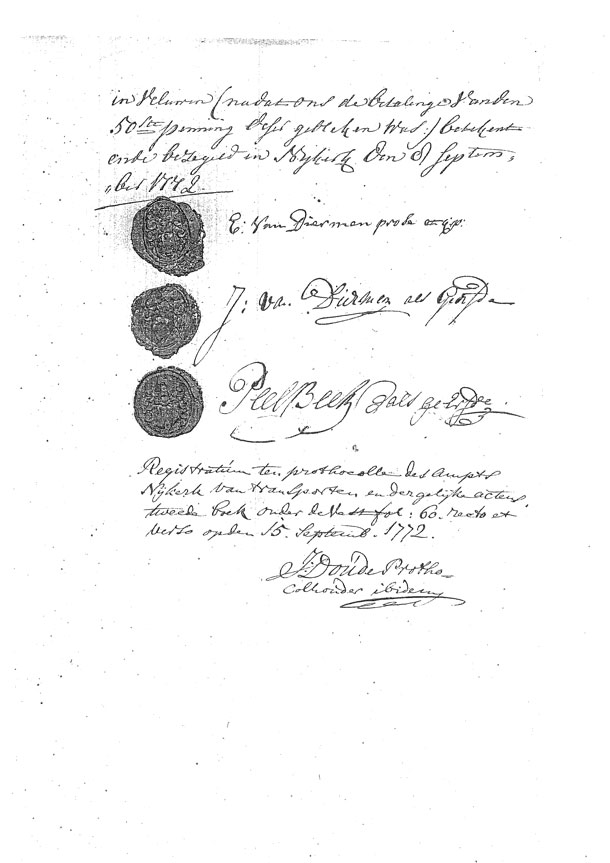 in Veluwen (nadat ons de betalinge Vanden
50ste penning deses gebleken Was:) betekent
ende bezegeld in Nijkerk den 8 Septem„
„ber 1772
E: Van Diermen pro se et qq:
J: van Diermen als
Peel Beek als
Registratum ten prothocolle des Ampts
Nijkerk van transporten en dergelijke actens
tweede boek onder de Vest fol: 60. recto et
verso op den 15. Septemb. 1772.
J: Doude Protho„
Colhouder ibidem